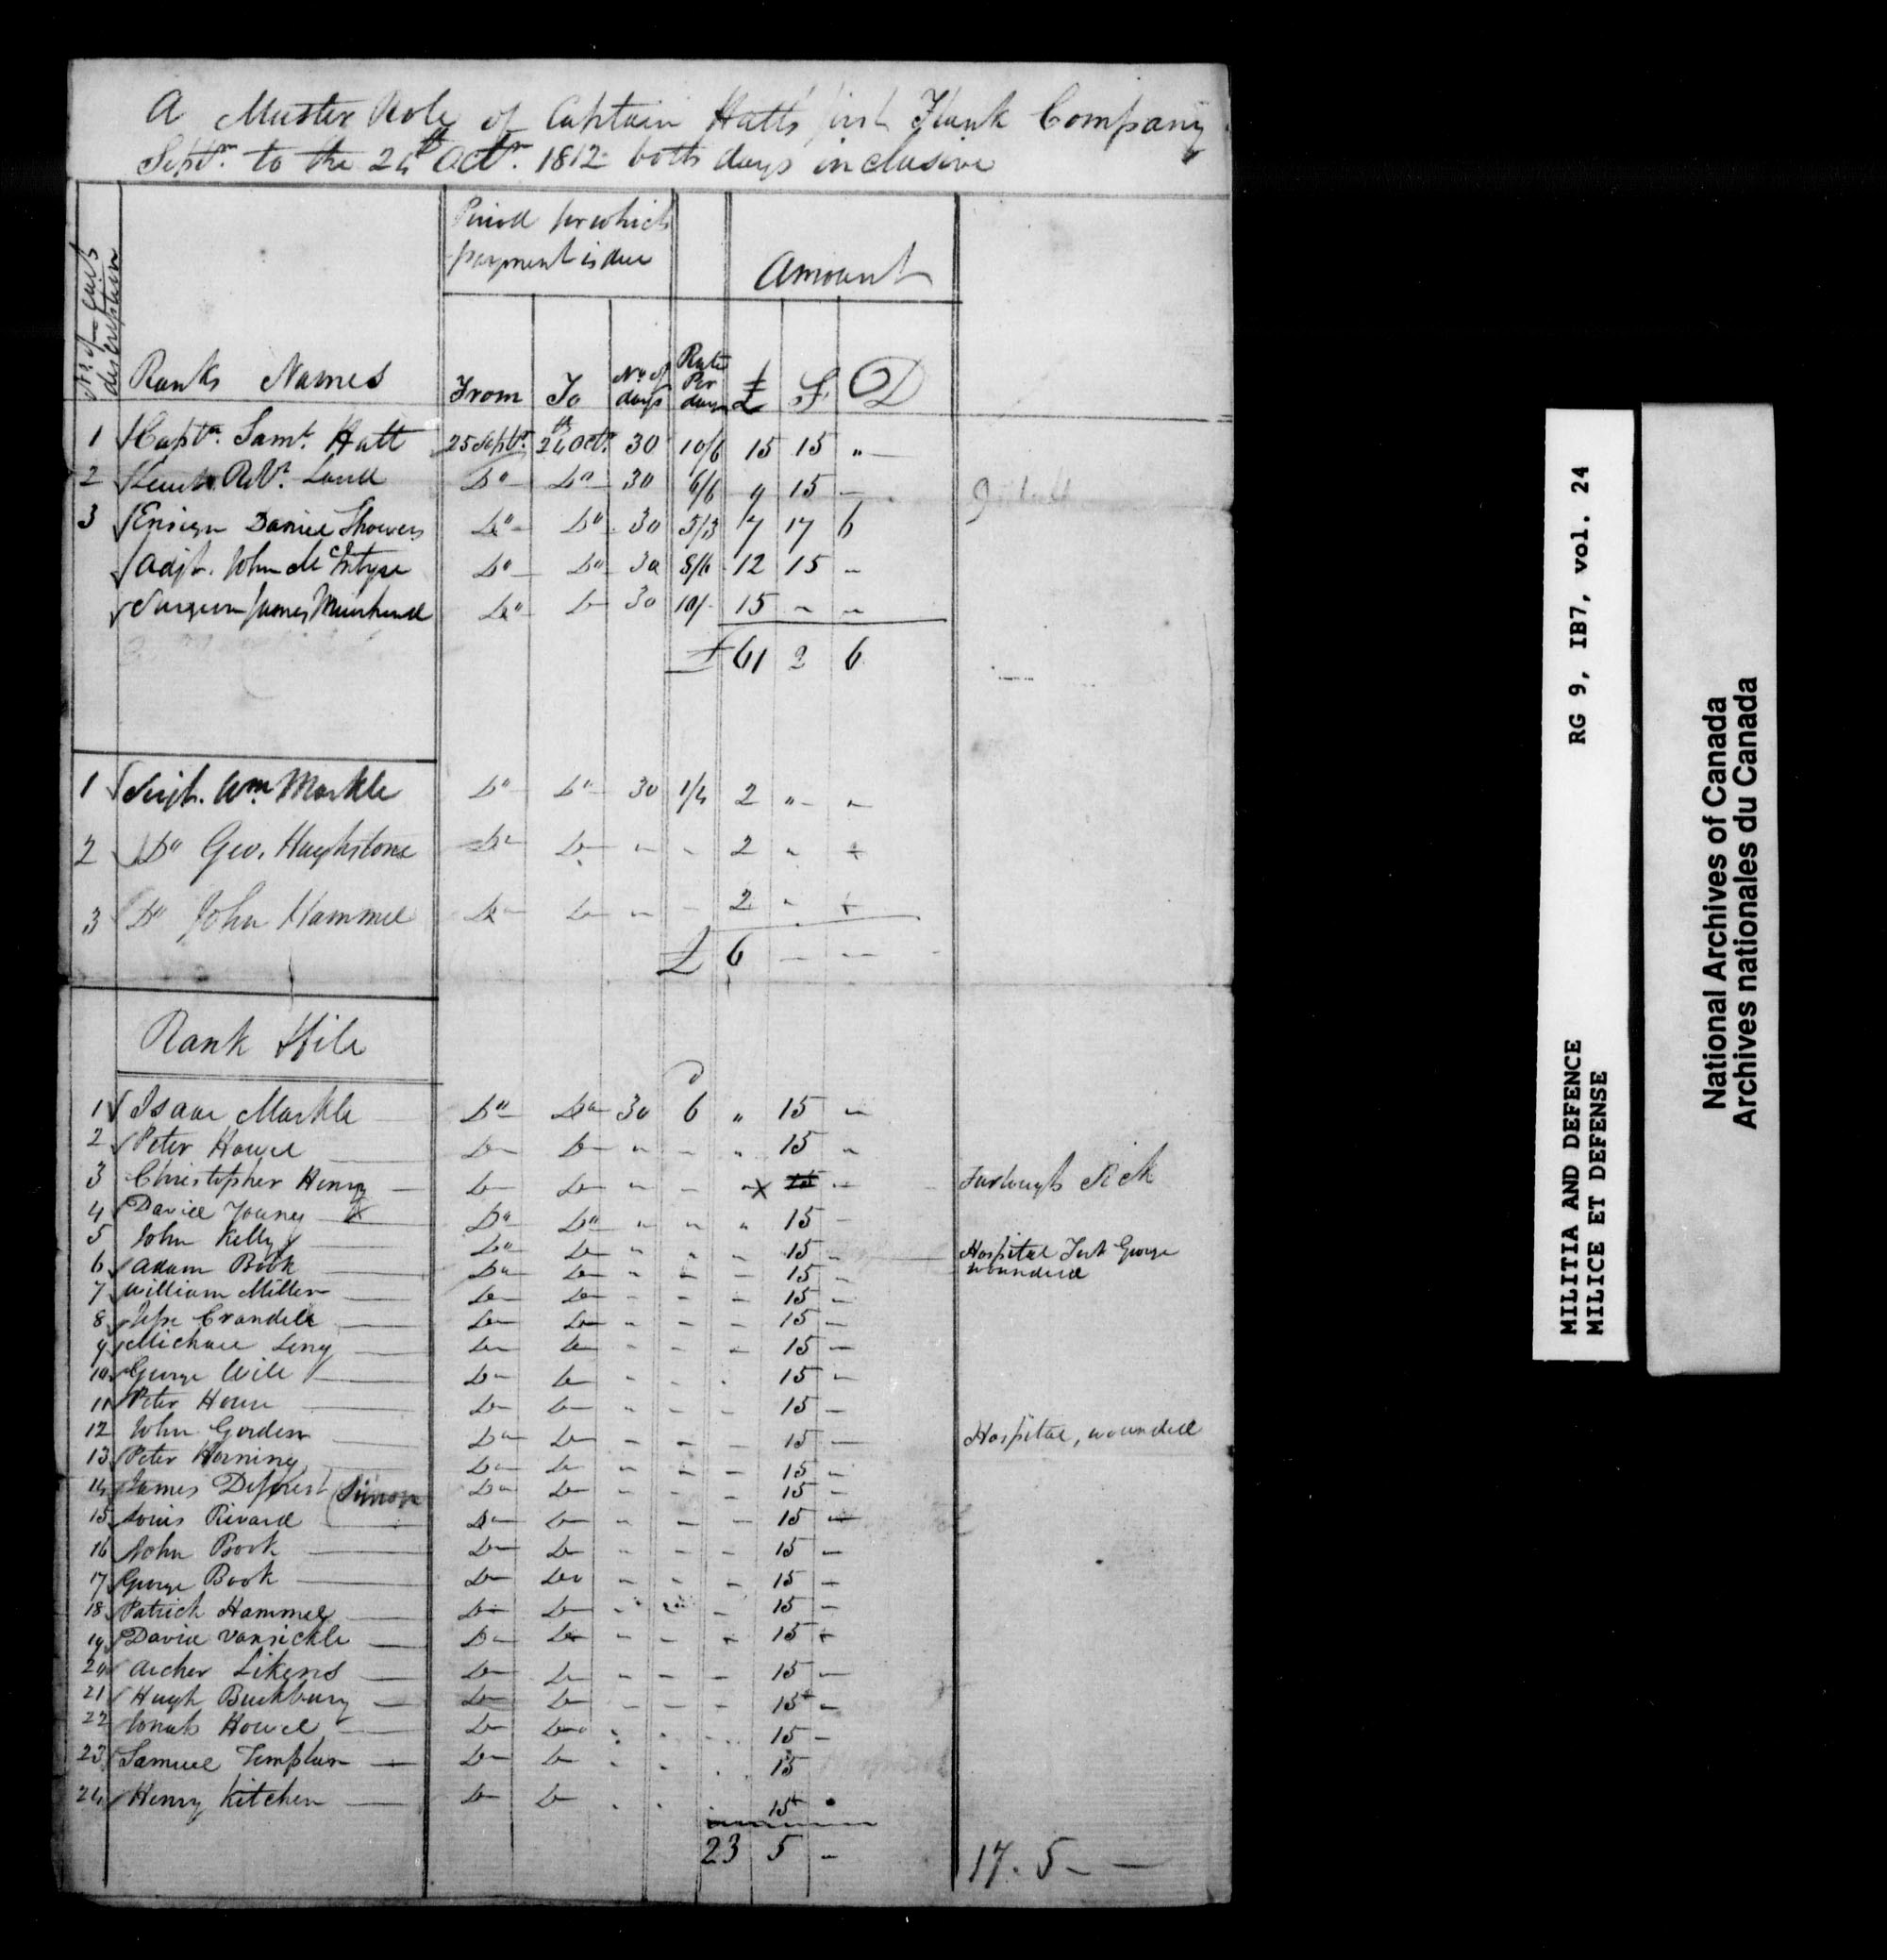 A Muster Role of Captain Hatts first Flank Company
Septr. to the 24th Octr. 1812 both days inclusive
No. of each description
Ranks Names
Period for which
payment is due
Amount
From To No. of days Rate Per day £ S D
1 Captn. Saml. Hatt 25 Septr. 24th Octr. 30 10/6 15 15 "
2 Lieut. Rt. Land Do Do 30 6/6 9 15 —
3 Ensign Daniel Showers Do Do 30 5/3 7 17 6
Adjt. John McIntyre Do Do 30 8/6 12 15 —
Surgeon James Muirhead Do Do 30 10/- 15 " "
£ 61 2 6
1 Serjt. Wm. Markle Do Do 30 1/4 2 " "
2 Do Geo. Hughstone Do Do " " 2 " "
3 Do John Hammel Do Do " " 2 " "
£ 6 — —
Rank & File
1 Isaac Markle Do Do 30 6 " 15 "
2 Peter Howel Do Do " " " 15 "
3 Christopher Henry Do Do " " " x 15 " Furlough Sick
4 David Young x Do Do " " " 15 —
5 John Kelly Do Do " " " 15 — Hospital Fort George
wounded
6 Adam Book Do Do " " " 15 —
7 William Miller Do Do " " " 15 —
8 Jesse Crandell Do Do " " " 15 —
9 Michael Do Do " " " 15 —
10 George Do Do " " " 15 —
11 Peter House Do Do " " " 15 —
12 John Gordon Do Do " " " 15 — Hospital, wounded
13 Peter Horning Do Do " " " 15 —
14 James Deforest (Simon Do Do " " " 15 —
15 Louis Rivard Do Do " " " 15 —
16 John Book Do Do " " " 15 —
17 George Book Do Do " " " 15 —
18 Patrick Hammel Do Do " " " 15 —
19 David Vansickle Do Do " " " 15 —
20 Archer Likens Do Do " " " 15 —
21 Hugh Buckbury Do Do " " " 15 —
22 Jonah Howel Do Do " " " 15 —
23 Samuel Templar Do Do " " " 15
24 Henry Kitchen Do Do " " " 15
23 5 — 17. 5 —
MILITIA AND DEFENCE RG 9, IB7, vol. 24
MILICE ET DEFENSE
National Archives of Canada
Archives nationales du Canada